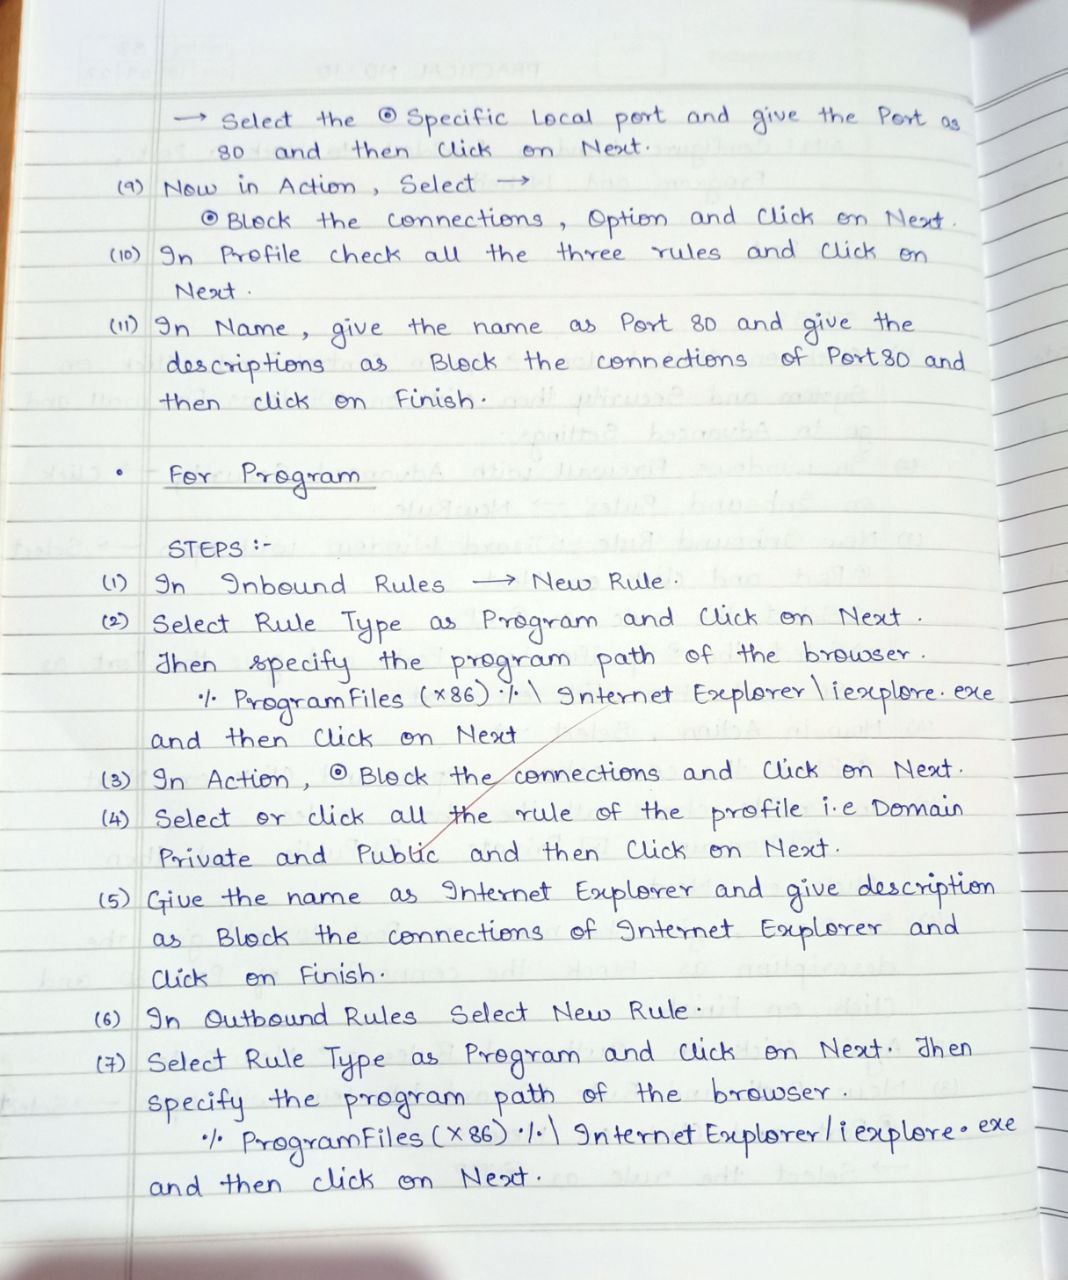 → Select the ⦿ Specific Local port and give the Port as
80 and then Click on Next.
(9) Now in Action, Select →
⦿ Block the connections, Option and Click on Next.
(10) In Profile check all the three rules and Click on
Next.
(11) In Name, give the name as Port 80 and give the
descriptions as Block the connections of Port 80 and
then click on Finish.
• For Program
STEPS :-
(1) In Inbound Rules → New Rule.
(2) Select Rule Type as Program and Click on Next.
Then specify the program path of the browser.
% ProgramFiles (x86) %\ Internet Explorer\iexplore.exe
and then Click on Next
(3) In Action, ⦿ Block the connections and Click on Next.
(4) Select or click all the rule of the profile i.e Domain
Private and Public and then Click on Next.
(5) Give the name as Internet Explorer and give description
as Block the connections of Internet Explorer and
Click on Finish.
(6) In Outbound Rules Select New Rule.
(7) Select Rule Type as Program and Click on Next. Then
specify the program path of the browser.
% ProgramFiles (x86) %\ Internet Explorer/iexplore.exe
and then click on Next.